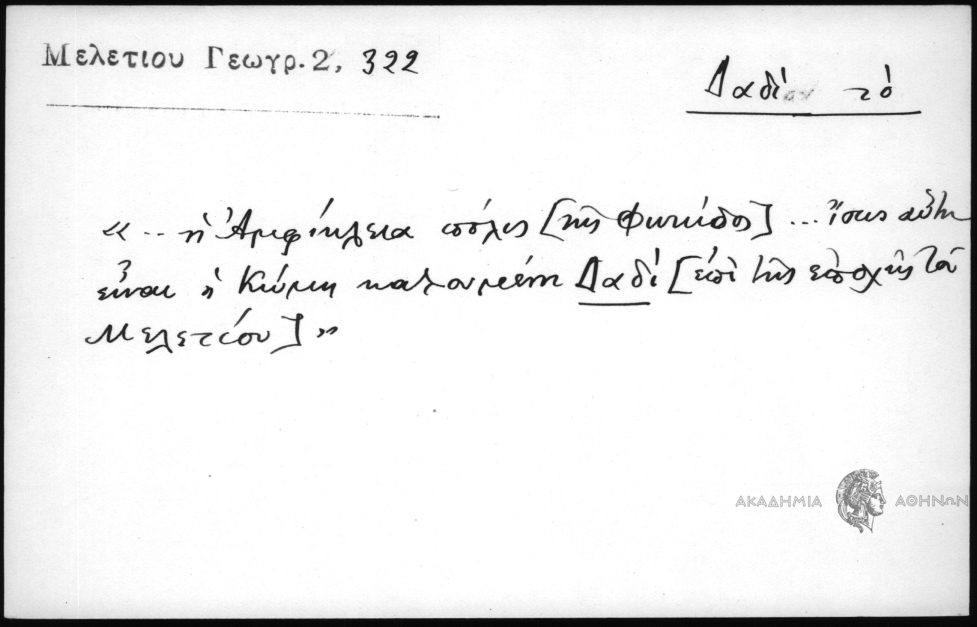 Μελετιου Γεωγρ. 2, 322
Δαδί τὸ
«... ἡ Ἀμφίκλεια πόλις [τῆς Φωκίδος] ... ἴσως αὕτη
εἶναι ἡ Κώμη καλουμένη Δαδί [ἐπὶ τῆς ἐποχῆς τοῦ
Μελετίου]»
ΑΚΑΔΗΜΙΑ ΑΘΗΝΩΝ